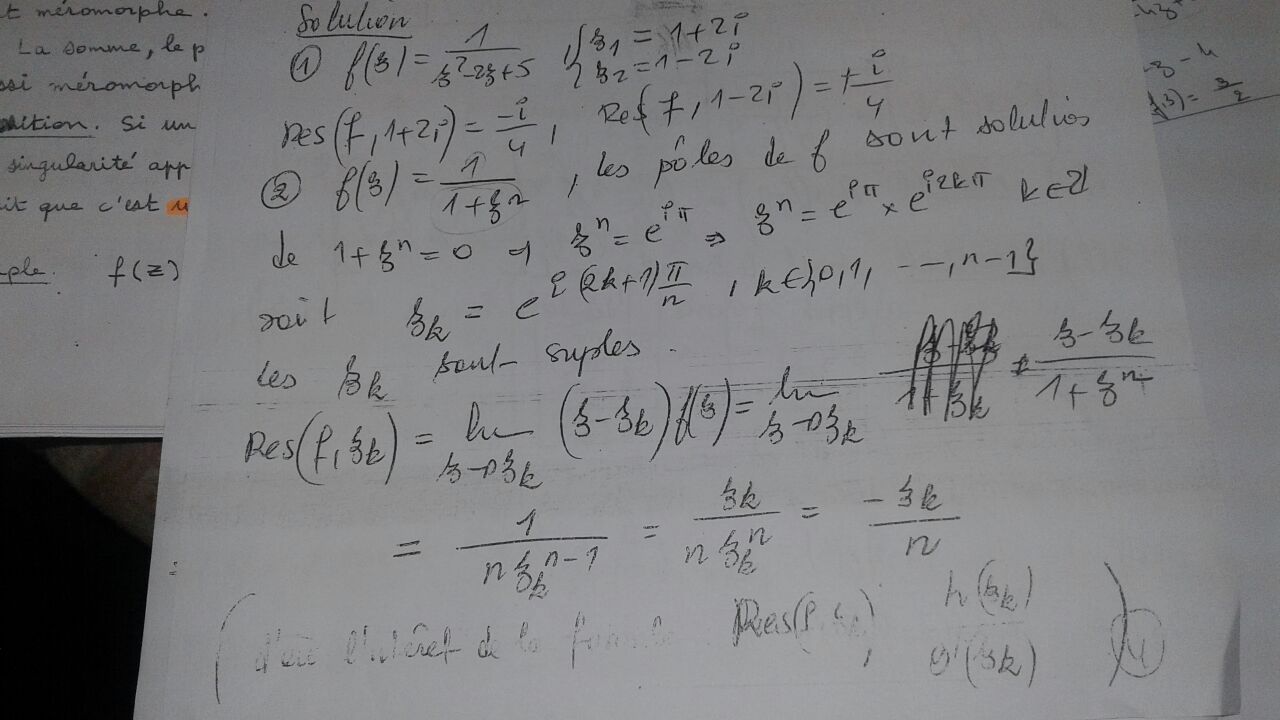 t méromorphe.
La somme, le p
ssi méromorph
nition. Si un
singularité app
it que c'est u
ple. f(z)
Solution
① f(z) = 1/(z²-2z+5) , { z₁ = 1+2i
{ z₂ = 1-2i
Res(f, 1+2i) = -i/4 , Res(f, 1-2i) = +i/4
② f(z) = 1/(1+zⁿ) , les pôles de f sont solutios
de 1+zⁿ = 0 → zⁿ = e^{iπ} ⇒ zⁿ = e^{iπ} × e^{i2kπ} k∈ℤ
soit z_k = e^{i(2k+1)π/n} , k∈{0,1, ---, n-1}
les z_k sont suples.
Res(f, z_k) = lim_{z→z_k} (z-z_k) f(z) = lim_{z→z_k} (z-z_k)/(1+zⁿ)
= 1/(n z_k^{n-1}) = z_k/(n z_k^n) = -z_k/n
( d'où l'intéret de la formule Res(f, z_k) , h(z_k)/g'(z_k) )
4
z-4
f(3) = 3/2